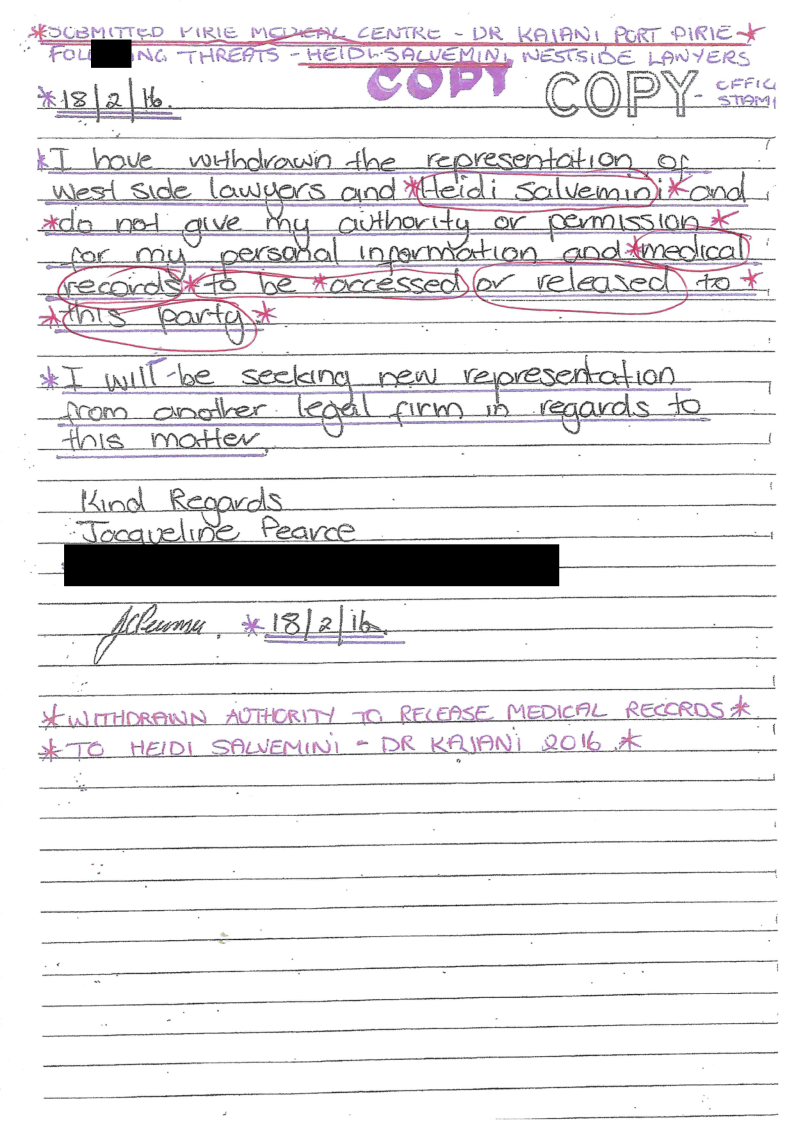 *SUBMITTED PIRIE MEDICAL CENTRE - DR KAIANI PORT PIRIE *
FOL ING THREATS - HEIDI SALVEMINI, WESTSIDE LAWYERS
COPY COPY - OFFIC
STAM
*18/2/16.
*I have withdrawn the representation of
West side lawyers and *Heidi Salvemini* and
*do not give my authority or permission *
for my personal information and *medical
records* to be *accessed or released to *
*this party *
*I will be seeking new representation
from another legal firm in regards to
this matter.
Kind Regards
Jacqueline Pearce
*18/2/16.
*WITHDRAWN AUTHORITY TO RELEASE MEDICAL RECORDS *
*TO HEIDI SALVEMINI - DR KAIANI 2016 *